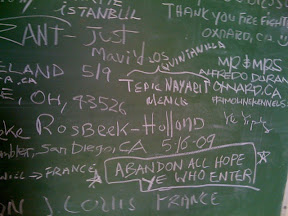 ISTANBUL
THANK YOU FREE FIGHT
OXNARD, CA.
ANT- JUST
Mavi'dos
QUINTANILLA
MR & MRS
ALFREDO DURAN
ELAND 5/9
TEPIC NAYARIT
OXNARD, CA
FA, CA
MEXICA
E, OH, 43526
ke ROSBEEK-Holland
mbler, San Diego, CA 5/16-09
FRANCE
ABANDON ALL HOPE
YE WHO ENTER
ON J LOUIS FRANCE